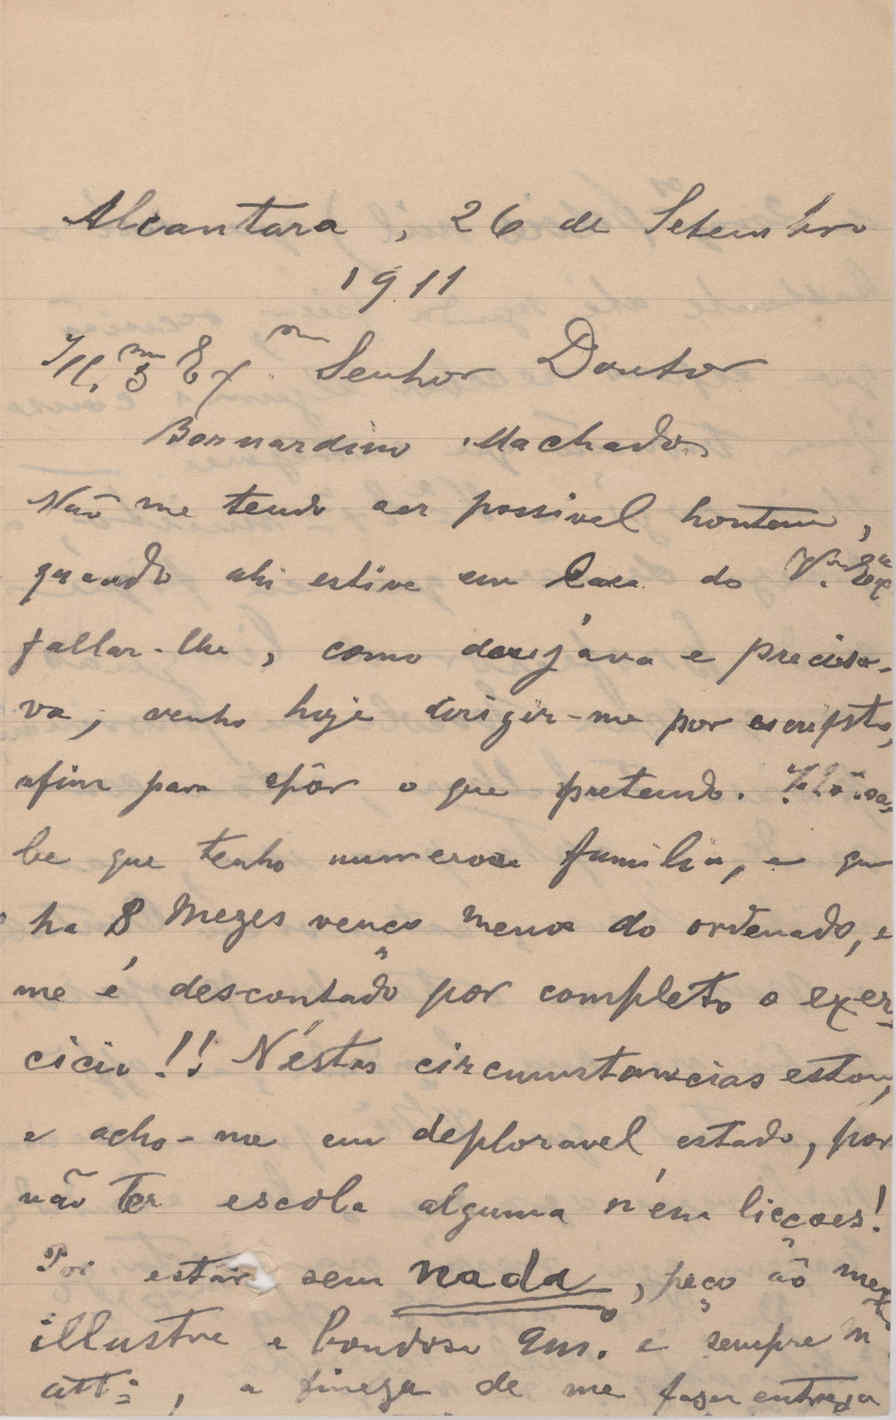 Alcantara, 26 de Setembro
1911
Ill.mo Ex.mo Senhor Doutor
Bernardino Machado
Não me tendo ser possivel hontem,
quando ahi estive em Casa do V. Exª
fallar-lhe, como desejáva e precisa-
va, venho hoje dirigir-me por escripto,
afim para spôr o que pretendo. sa-
be que tenho numerosa familia, e que
ha 8 Mezes venço menos do ordenado, e
me é descontado por completo o exer-
cicio!! N'éstas circumstancias estou,
e acho-me em deploravel estado, por
não ter escola alguma n'em licções!
Por estar sem nada, peço áo meu
illustre e bondoso Am. e sempre
att:, a fineza de me fazer entrega